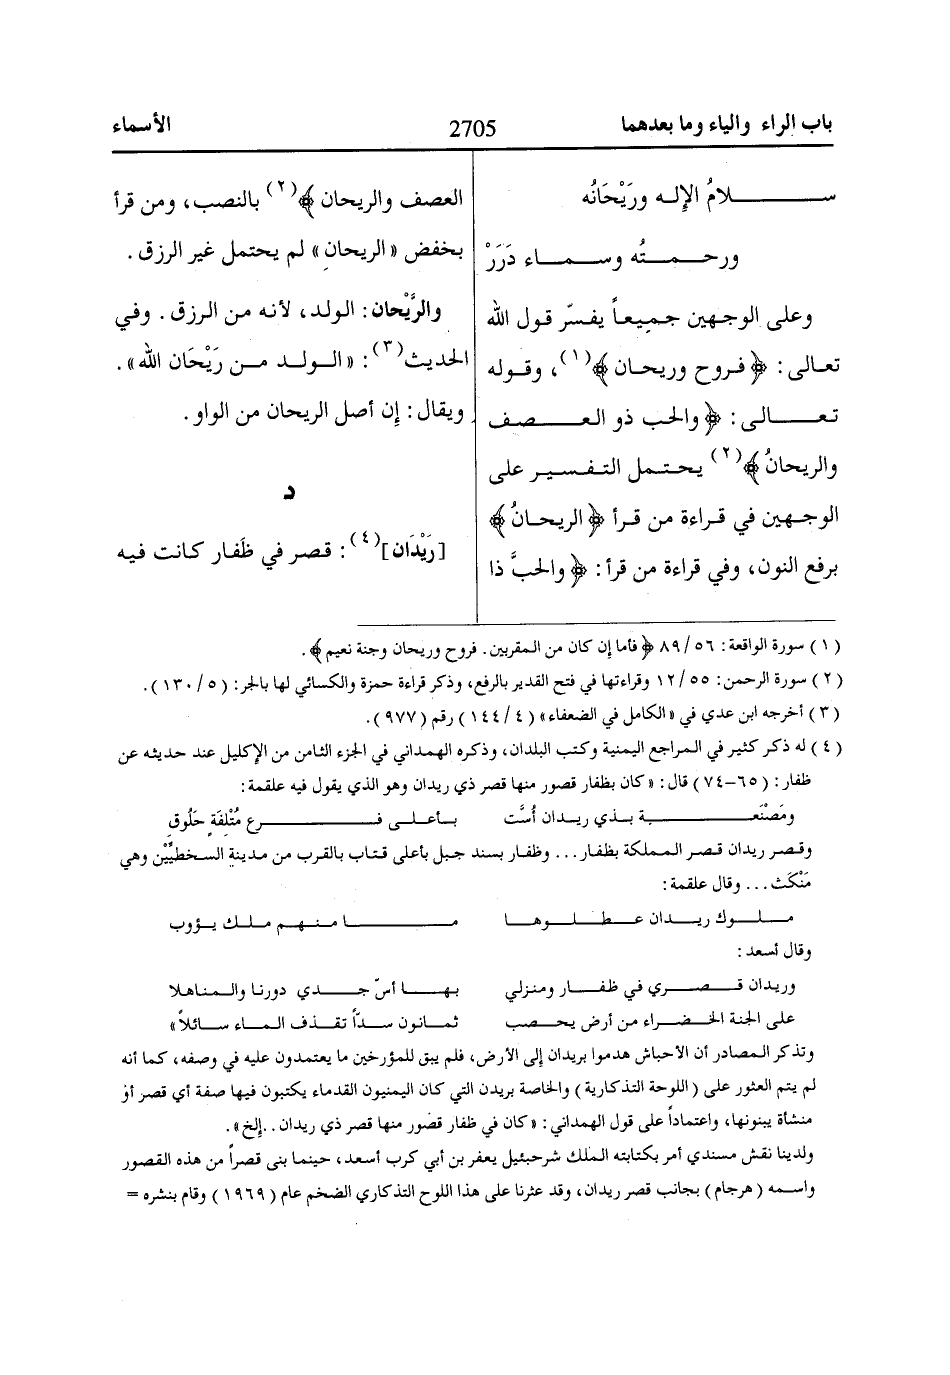 باب الراء والياء وما بعدهما 2705 الأسماء
سـلامُ الإلـه ورَيْحَانُه
ورحـمـتُه وسـمـاء دَرَرْ
وعلى الوجهين جميعاً يفسّر قول الله
تعالى: ﴿ فروح وريحان ﴾(١)، وقوله
تعـالى: ﴿ والحب ذو العـصف
والريحانُ ﴾(٢) يحتمل التفسير على
الوجهين في قراءة من قرأ ﴿ الريحانُ ﴾
برفع النون، وفي قراءة من قرأ: ﴿ والحبَّ ذا
العصف والريحان ﴾(٢) بالنصب، ومن قرأ
بخفض «الريحانِ» لم يحتمل غير الرزق.
والرَّيْحان: الولد، لأنه من الرزق. وفي
الحديث(٣): «الـولد مـن رَيْحَان الله».
ويقال: إن أصل الريحان من الواو.
د
[رَيْدَان](٤): قصر في ظَفار كانت فيه
(١) سورة الواقعة: ٨٩/٥٦ ﴿ فأما إن كان من المقربين. فروح وريحان وجنة نعيم ﴾.
(٢) سورة الرحمن: ١٢/٥٥ وقراءتها في فتح القدير بالرفع، وذكر قراءة حمزة والكسائي لها بالجر: (١٣٠/٥).
(٣) أخرجه ابن عدي في «الكامل في الضعفاء» (١٤٤/٤) رقم (٩٧٧).
(٤) له ذكر كثير في المراجع اليمنية وكتب البلدان، وذكره الهمداني في الجزء الثامن من الإكليل عند حديثه عن
ظفار: (٦٥–٧٤) قال: «كان بظفار قصور منها قصر ذي ريدان وهو الذي يقول فيه علقمة:
ومَصْنَعـة بـذي ريـدان أُسَّت بـأعلـى فـرع مُتْلفَةٍ حَلُوق
وقصر ريدان قصر المملكة بظفار... وظفار بسند جبل بأعلى قتاب بالقرب من مدينة السخطيِّيْن وهي
مَنْكَث... وقال علقمة:
مـلـوك ريـدان عـطـلـوهـا مـا منـهـم مـلـك يـؤوب
وقال أسعد:
وريدان قـصـري في ظفـار ومنزلي بـهـا أسّ جـدي دورنا والمناهلا
على الجنة الخضراء من أرض يحصب ثمـانون سـدّاً تقـذف المـاء سـائلاً»
وتذكر المصادر أن الأحباش هدموا بريدان إلى الأرض، فلم يبق للمؤرخين ما يعتمدون عليه في وصفه، كما أنه
لم يتم العثور على (اللوحة التذكارية) والخاصة بريدن التي كان اليمنيون القدماء يكتبون فيها صفة أي قصر أوْ
منشأة يبنونها، واعتماداً على قول الهمداني: «كان في ظفار قصُور منها قصر ذي ريدان ..إلخ».
ولدينا نقش مسندي أمر بكتابته الملك شرحبئيل يعفر بن أبي كرب أسعد، حينما بنى قصراً من هذه القصور
واسمه (هرجام) بجانب قصر ريدان، وقد عثرنا على هذا اللوح التذكاري الضخم عام (١٩٦٩) وقام بنشره =